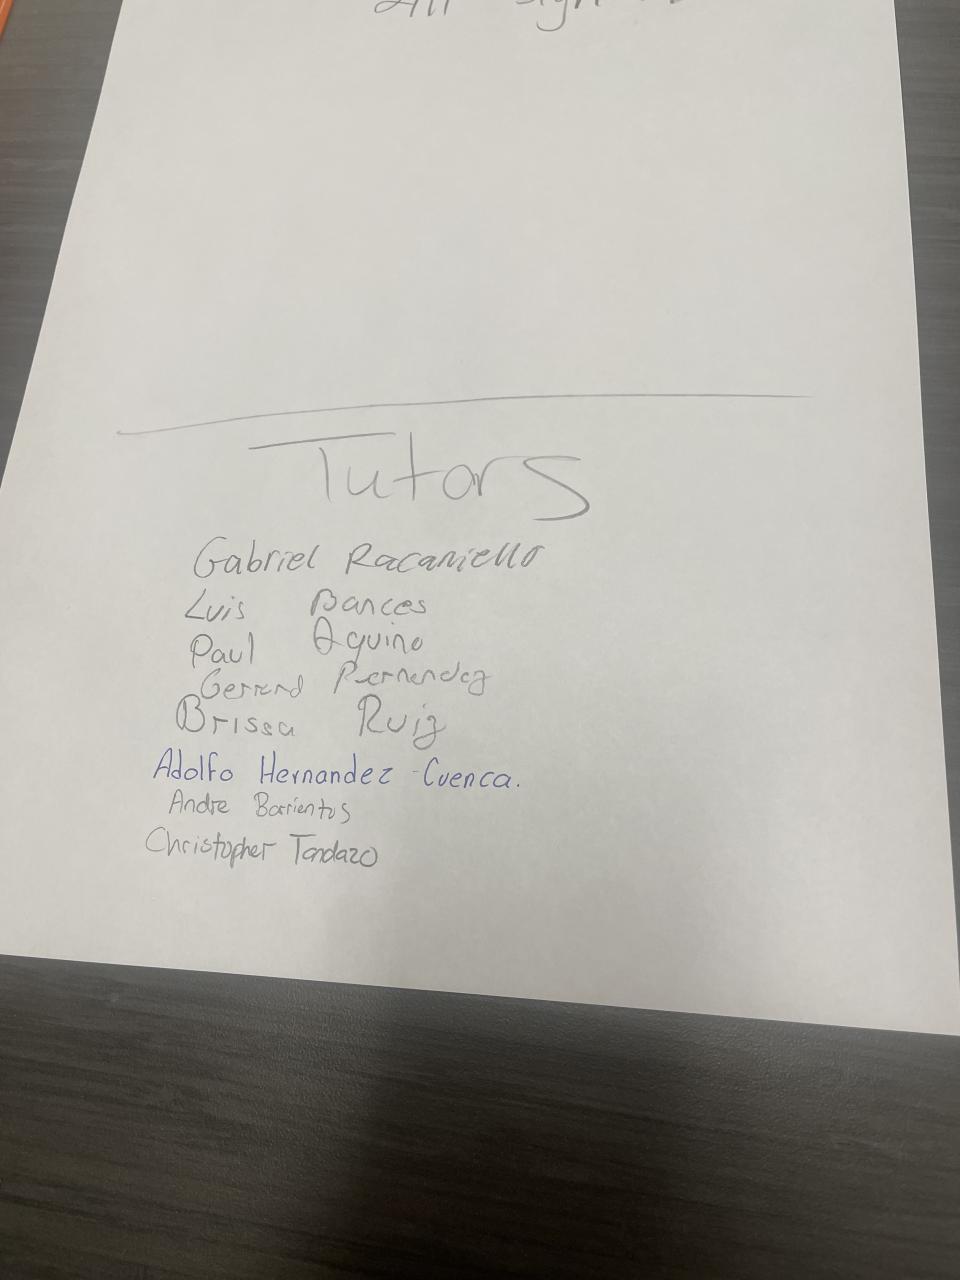 Tutors
Gabriel Racaniello
Luis Bances
Paul Aquino
Brissa Ruiz
Adolfo Hernandez-Cuenca.
Andre Barrientos
Christopher Tandazo